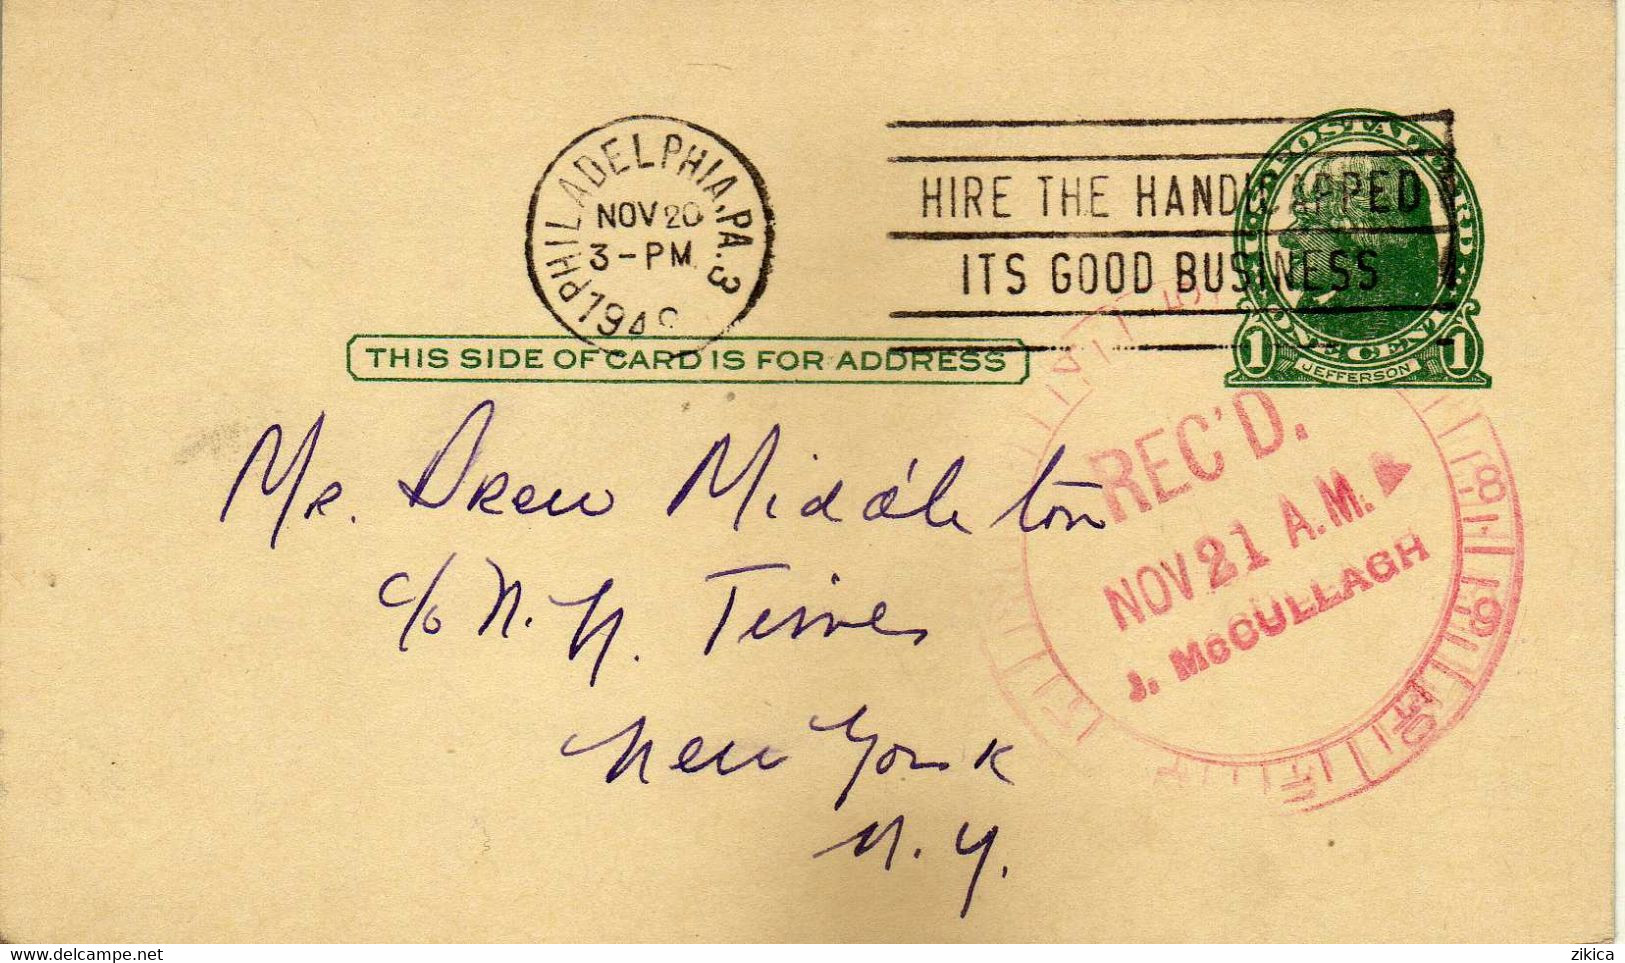 PHILADELPHIA, PA. 3
NOV 20
3-PM
U.S. POSTAL CARD
HIRE THE HANDICAPPED
ITS GOOD BUSINESS
1 ONE CENT 1
JEFFERSON
THIS SIDE OF CARD IS FOR ADDRESS
REC'D.
NOV 21 A.M.
J. McCULLAGH
8 9 10
Mr. Drew Middleton
c/o N.Y. Times
New York
N.Y.
delcampe.net
zikica